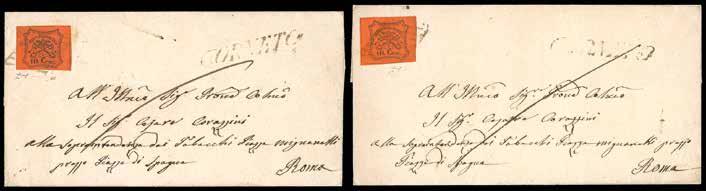 10 Cent
CORNETO
All' Illmo Sig. Prond Colmo
Il Sig. Cesare Corazzini
alla Soprintendenza dei Tabacchi Piazza mignanelli
presso Piazza di Spagna
Roma
10 Cent
CORNETO
All' Illmo Sig. Prond Colmo
Il Sig. Cesare Corazzini
alla Soprintendenza dei Tabacchi Piazza mignanelli presso
Piazza di Spagna
Roma